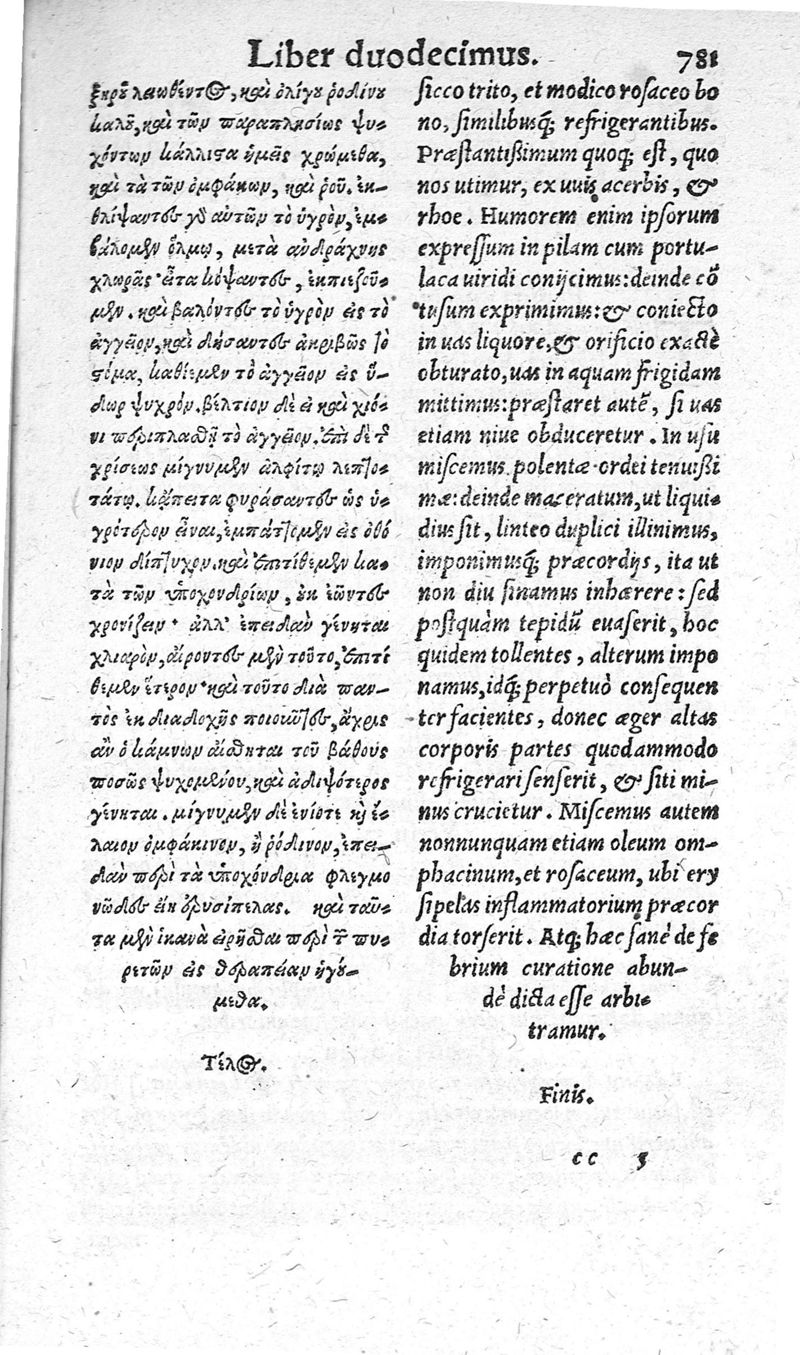 Liber duodecimus. 781
ξηροῦ λειωθέντος, καὶ ὀλίγου ῥοδίνου
καλοῦ, καὶ τῶν παραπλησίως ψυ-
χόντων κάλλιστα ἡμεῖς χρώμεθα,
καὶ τὰ τῶν ὀμφάκων, καὶ ῥοῦ. ἐκ-
θλίψαντες γὸ αὐτῶν τὸ ὑγρὸν, ἐμ-
βάλομεν ὅλμῳ, μετὰ ἀνδράχνης
χλωρᾶς· εἶτα κόψαντες, ἐκπιεζοῦ-
μεν. καὶ βαλόντες τὸ ὑγρὸν εἰς τὸ
ἀγγεῖον, καὶ δήσαντες ἀκριβῶς τὸ
στόμα, καθίεμεν τὸ ἀγγεῖον εἰς ὕ-
δωρ ψυχρόν. βέλτιον δὲ εἰ καὶ χιό-
νι περιπλασθῇ τὸ ἀγγεῖον. ἐπὶ δὲ τ͂
χρίσεως μίγνυμεν ἀλφίτῳ λεπτο-
τάτῳ. κἄπειτα φυράσαντες ὡς ὑ-
γρότερον εἶναι, ἐμπάττομεν εἰς ὀθό
νιον δίπτυχον. καὶ ἐπιτίθεμεν κα-
τὰ τῶν ὑποχονδρίων, οὐκ ἐῶντες
χρονίζειν· ἀλλ' ἐπειδὰν γένηται
χλιαρὸν, αἴροντες μὲν τοῦτο, ἐπιτί
θεμεν ἕτερον· καὶ τοῦτο διὰ παν-
τὸς ἐκ διαδοχῆς ποιοῦντες, ἄχρις
ἂν ὁ κάμνων αἴσθηται τοῦ βάθους
ποσῶς ψυχομένου, καὶ ἀδιψότερος
γένηται. μίγνυμεν δὲ ἐνίοτε κὴ ἔ-
λαιον ὀμφάκινον, ἢ ῥόδινον, ἐπει-
δὰν περὶ τὰ ὑποχόνδρια φλεγμο
νῶδες εἴη ἐρυσίπελας. καὶ ταῦ-
τα μὲν ἱκανὰ εἰρῆσθαι περὶ τ͂ πυ-
ρετῶν εἰς θεραπείαν ἡγού-
μεθα.
Τέλος.
sicco trito, et modico rosaceo bo
no, similibusq́; refrigerantibus.
Præstantißimum quoq; est, quo
nos utimur, ex uuis acerbis, &
rhoe. Humorem enim ipsorum
expressum in pilam cum portu-
laca uiridi conijcimus: deinde cõ
tusum exprimimus: & coniecto
in uas liquore, & orificio exactè
obturato, uas in aquam frigidam
mittimus: præstaret autẽ, si uas
etiam niue obduceretur. In usu
miscemus polentæ ordei tenuißi
mæ: deinde maceratum, ut liqui-
dius sit, linteo duplici illinimus,
imponimusq́; præcordijs, ita ut
non diu sinamus inhærere: sed
postquàm tepidũ euaserit, hoc
quidem tollentes, alterum impo
namus, idq́; perpetuò consequen
ter facientes, donec æger altas
corporis partes quodammodo
refrigerari senserit, & siti mi-
nus crucietur. Miscemus autem
nonnunquam etiam oleum om-
phacinum, et rosaceum, ubi ery
sipelas inflammatorium præcor
dia torserit. Atq; hæc sanè de fe
brium curatione abun-
dè dicta esse arbi-
tramur.
Finis.
cc 3